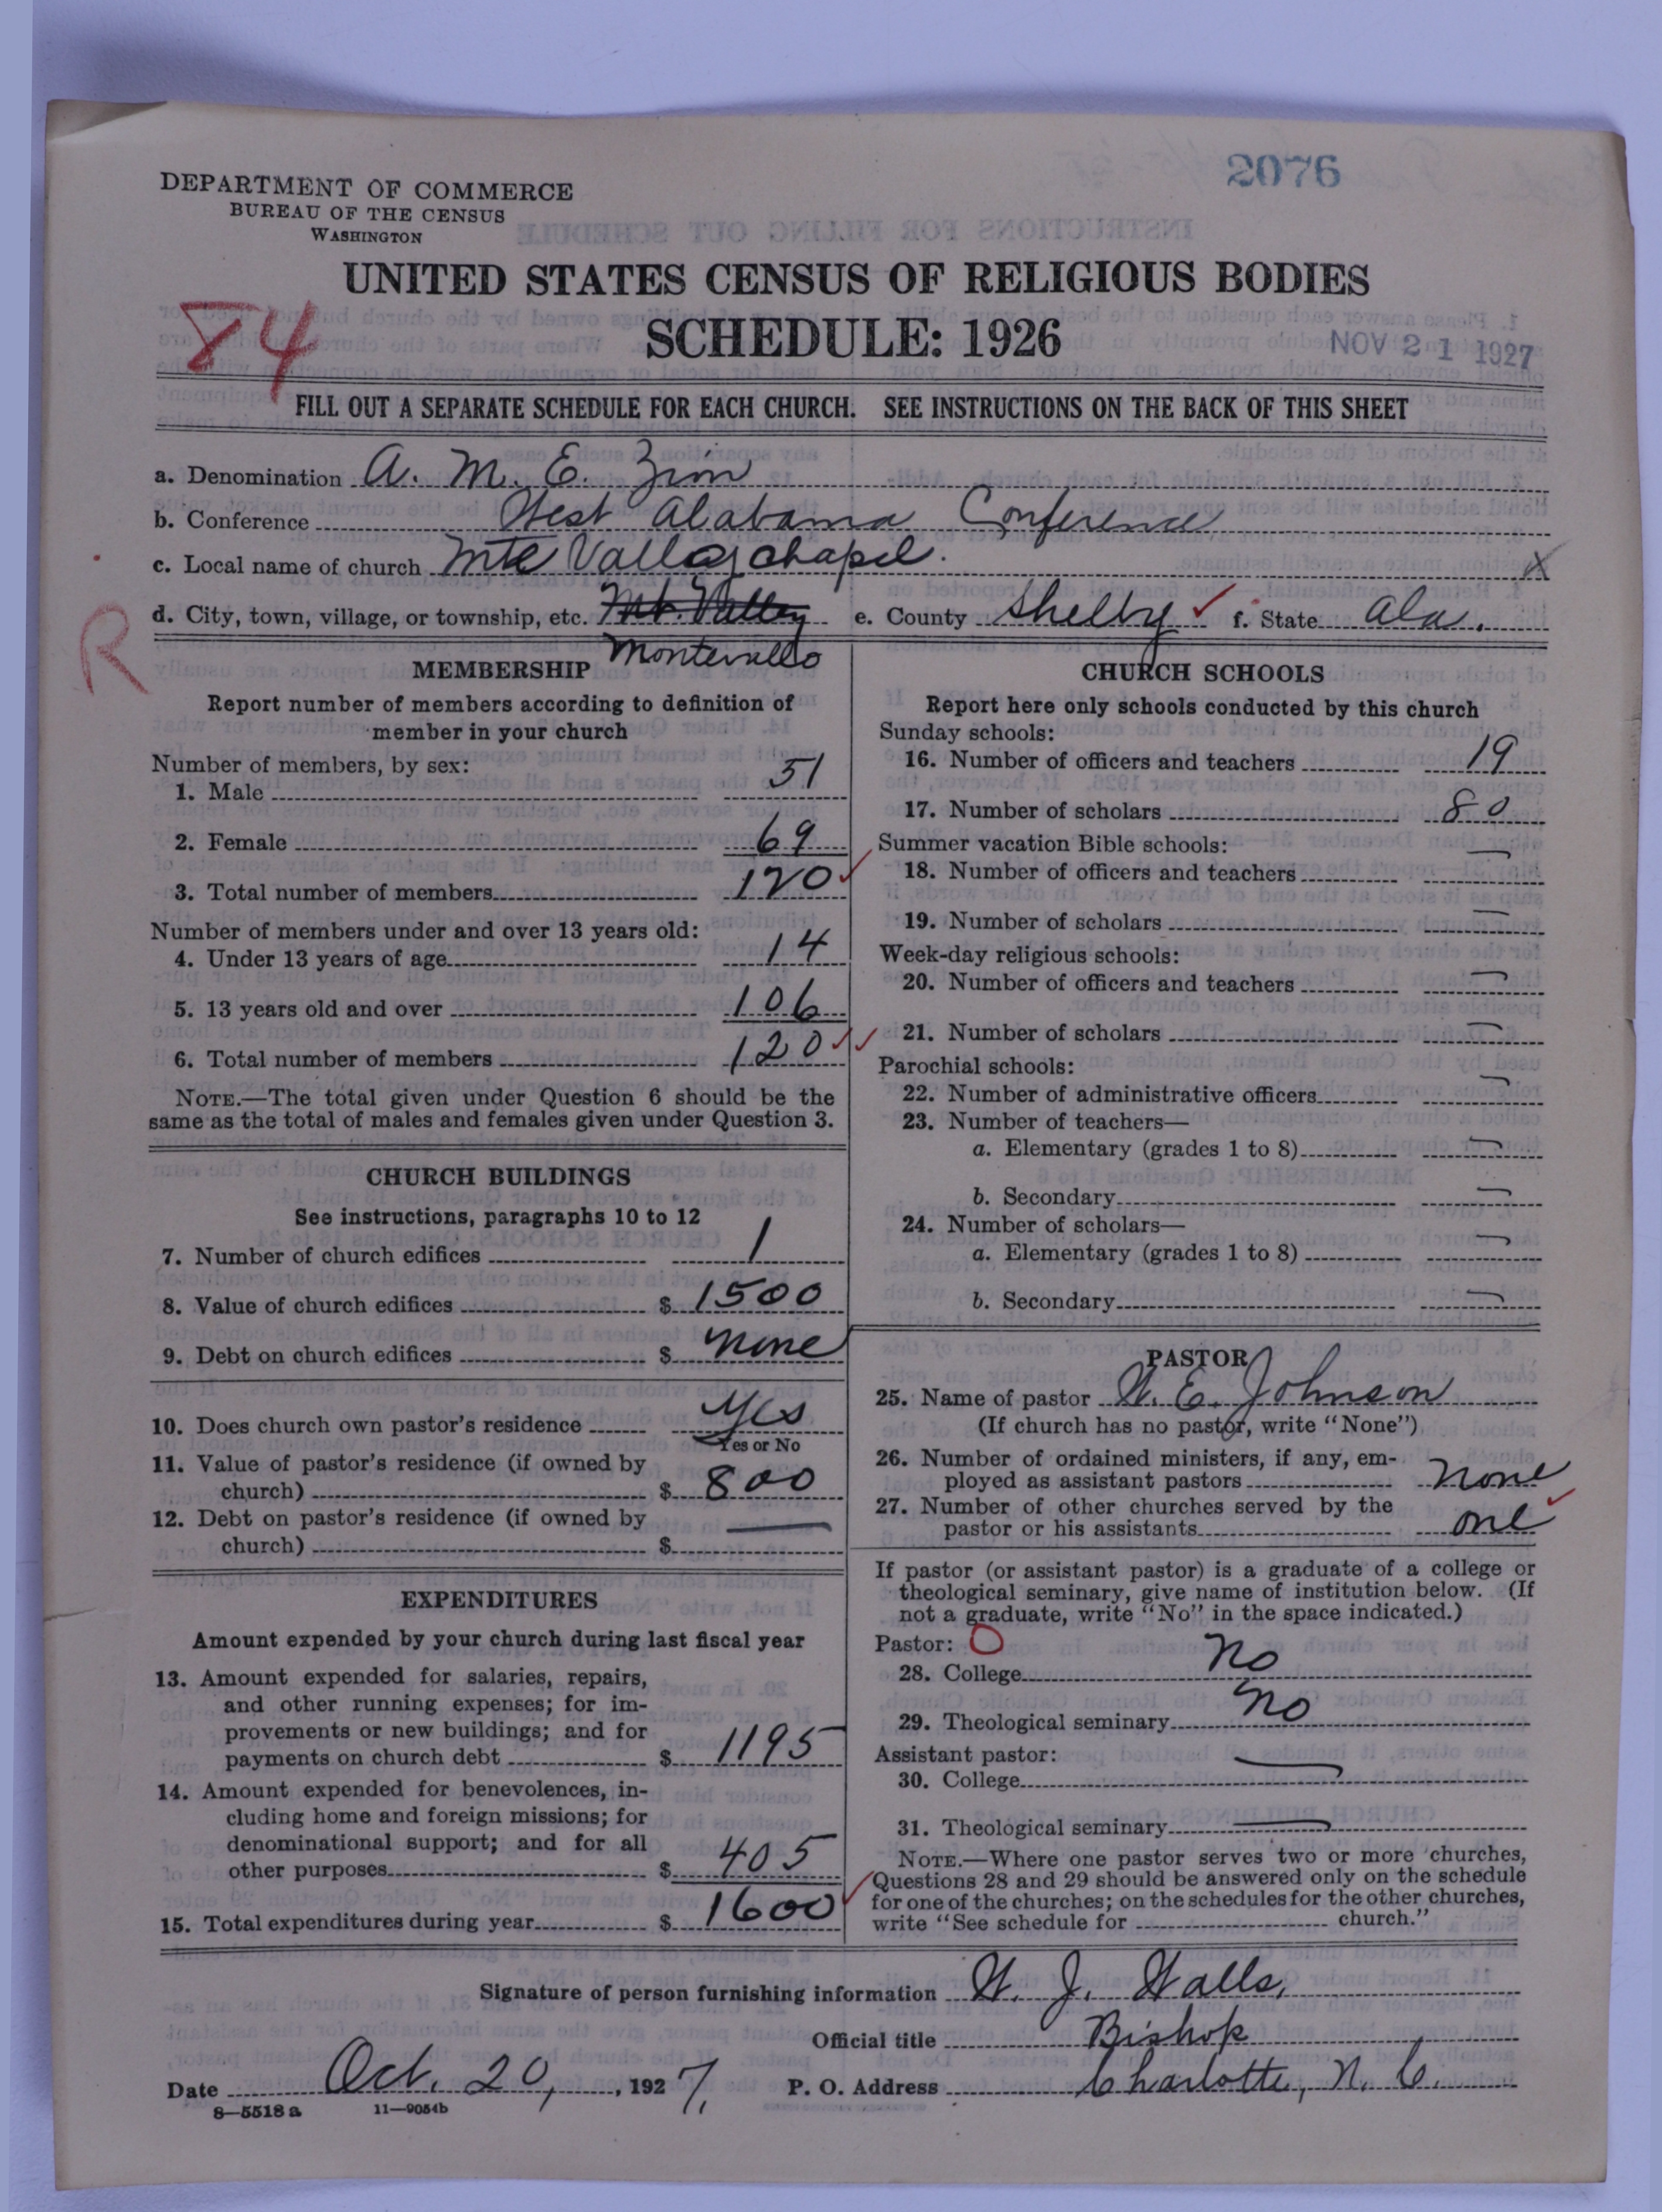 2076
DEPARTMENT OF COMMERCE
BUREAU OF THE CENSUS
WASHINGTON
UNITED STATES CENSUS OF RELIGIOUS BODIES
84
SCHEDULE: 1926
NOV 21 1927
FILL OUT A SEPARATE SCHEDULE FOR EACH CHURCH. SEE INSTRUCTIONS ON THE BACK OF THIS SHEET
a. Denomination A. M. E. Zion
b. Conference West Alabama Conference
c. Local name of church Mte Valley chapel. X
d. City, town, village, or township, etc. Mt. Valley e. County Shelby ✓ f. State Ala.
Montevallo
R
MEMBERSHIP
Report number of members according to definition of
member in your church
Number of members, by sex:
1. Male 51
2. Female 69
3. Total number of members 120 ✓
Number of members under and over 13 years old:
4. Under 13 years of age 14
5. 13 years old and over 106
6. Total number of members 120 ✓✓
NOTE.—The total given under Question 6 should be the
same as the total of males and females given under Question 3.
CHURCH BUILDINGS
See instructions, paragraphs 10 to 12
7. Number of church edifices 1
8. Value of church edifices $ 1500
9. Debt on church edifices $ none
10. Does church own pastor's residence Yes
Yes or No
11. Value of pastor's residence (if owned by
church) $ 800
12. Debt on pastor's residence (if owned by
church) $ —
EXPENDITURES
Amount expended by your church during last fiscal year
13. Amount expended for salaries, repairs,
and other running expenses; for im-
provements or new buildings; and for
payments on church debt $ 1195
14. Amount expended for benevolences, in-
cluding home and foreign missions; for
denominational support; and for all
other purposes $ 405
15. Total expenditures during year $ 1600 ✓
CHURCH SCHOOLS
Report here only schools conducted by this church
Sunday schools:
16. Number of officers and teachers 19
17. Number of scholars 80
Summer vacation Bible schools:
18. Number of officers and teachers —
19. Number of scholars —
Week-day religious schools:
20. Number of officers and teachers —
21. Number of scholars —
Parochial schools:
22. Number of administrative officers —
23. Number of teachers—
a. Elementary (grades 1 to 8) —
b. Secondary —
24. Number of scholars—
a. Elementary (grades 1 to 8) —
b. Secondary —
PASTOR
25. Name of pastor W. E. Johnson
(If church has no pastor, write "None")
26. Number of ordained ministers, if any, em-
ployed as assistant pastors none
27. Number of other churches served by the
pastor or his assistants one ✓
If pastor (or assistant pastor) is a graduate of a college or
theological seminary, give name of institution below. (If
not a graduate, write "No" in the space indicated.)
Pastor: O
28. College No
29. Theological seminary No
Assistant pastor:
30. College —
31. Theological seminary —
NOTE.—Where one pastor serves two or more churches,
Questions 28 and 29 should be answered only on the schedule
for one of the churches; on the schedules for the other churches,
write "See schedule for church."
Signature of person furnishing information W. J. Walls,
Official title Bishop
Date Oct. 20, , 1927. P. O. Address Charlotte, N. C.
8—5518 a 11—9054b